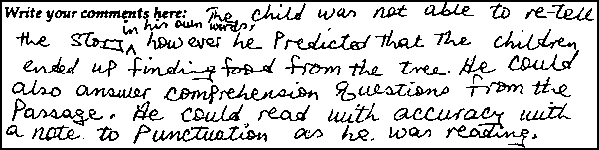 Write your comments here: The child was not able to re-tell
the story in his own words, however he Predicted That The children
ended up finding food from the tree. He could
also answer comprehension Questions from the
Passage. He could read with accuracy with
a note to Punctuation as he was reading.